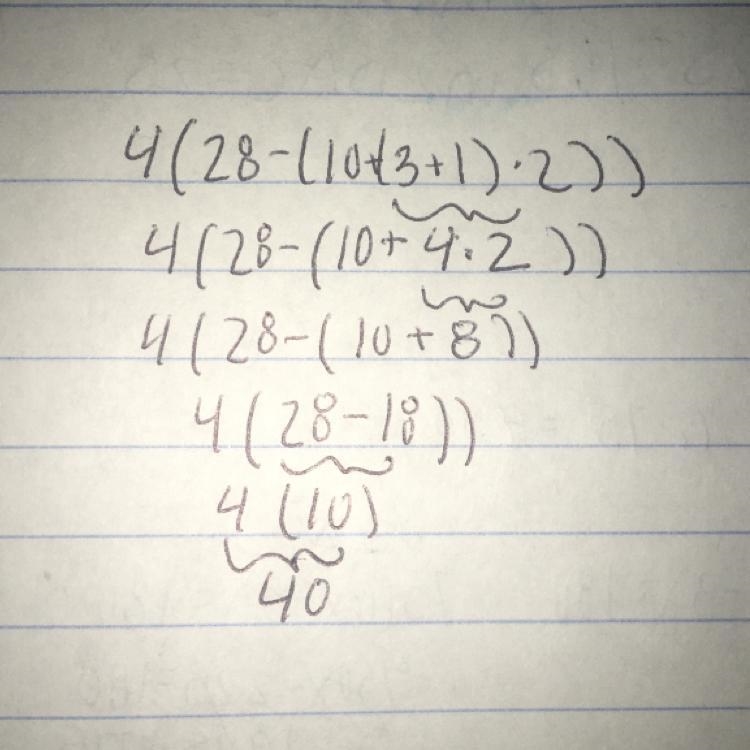 4(28-(10+(3+1)·2))
4(28-(10+4·2))
4(28-(10+8))
4(28-18))
4(10)
40